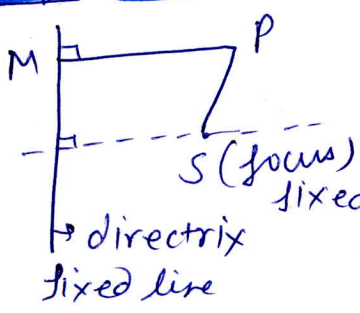 P
M
S (focus)
fixed
directrix
fixed line